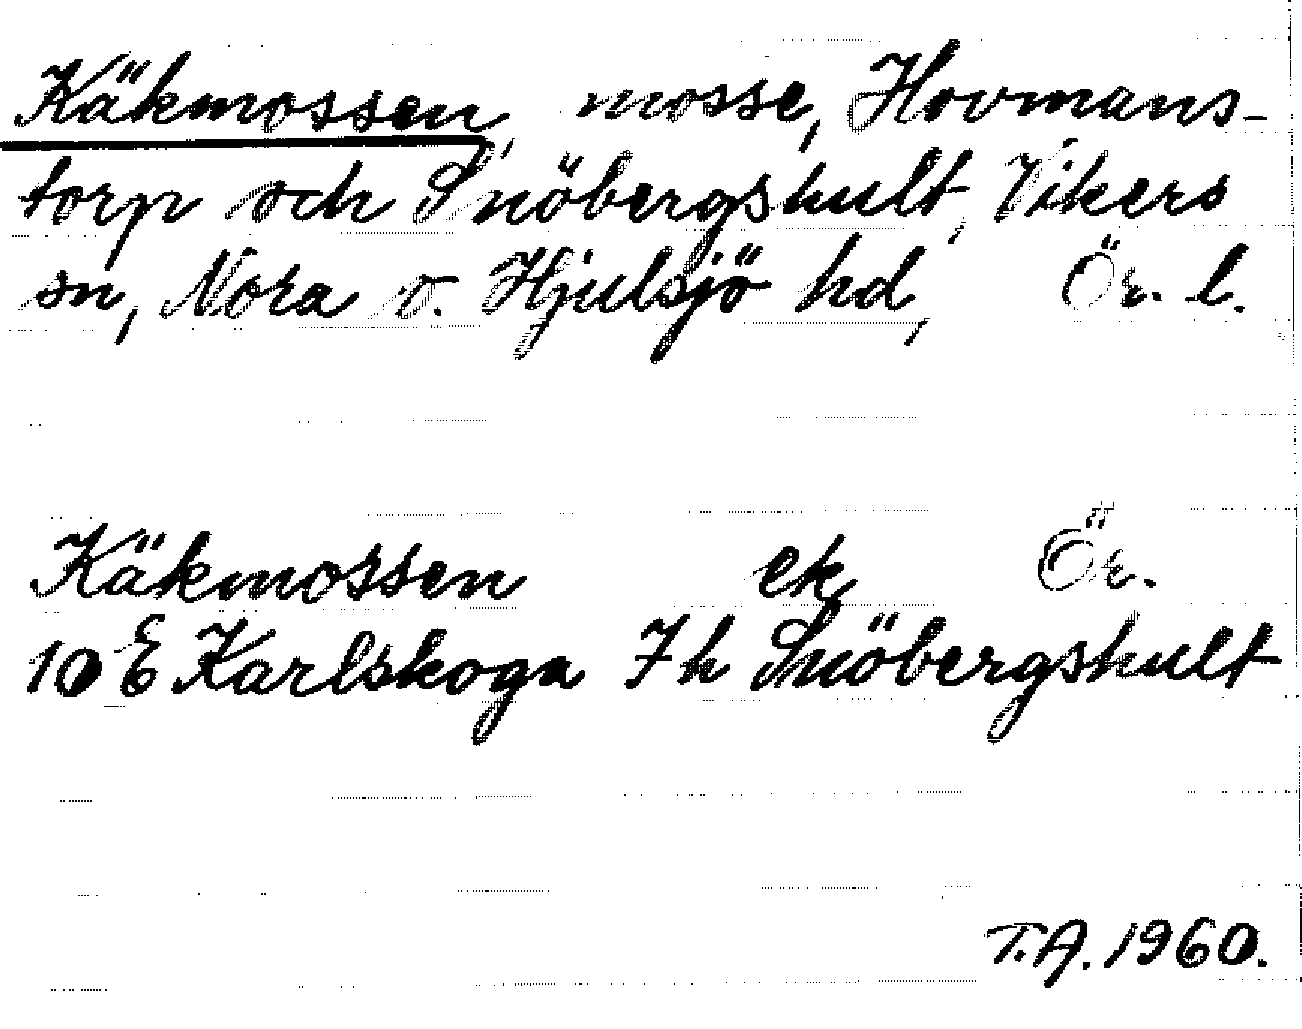 Käkmossen, mosse, Hovmans-
torp och Snöbergshult, Vikers
sn, Nora o. Hjulsjö hd, Ör. l.
Käkmossen ek Ör.
10 E Karlskoga 7h Snöbergshult
T.A. 1960.